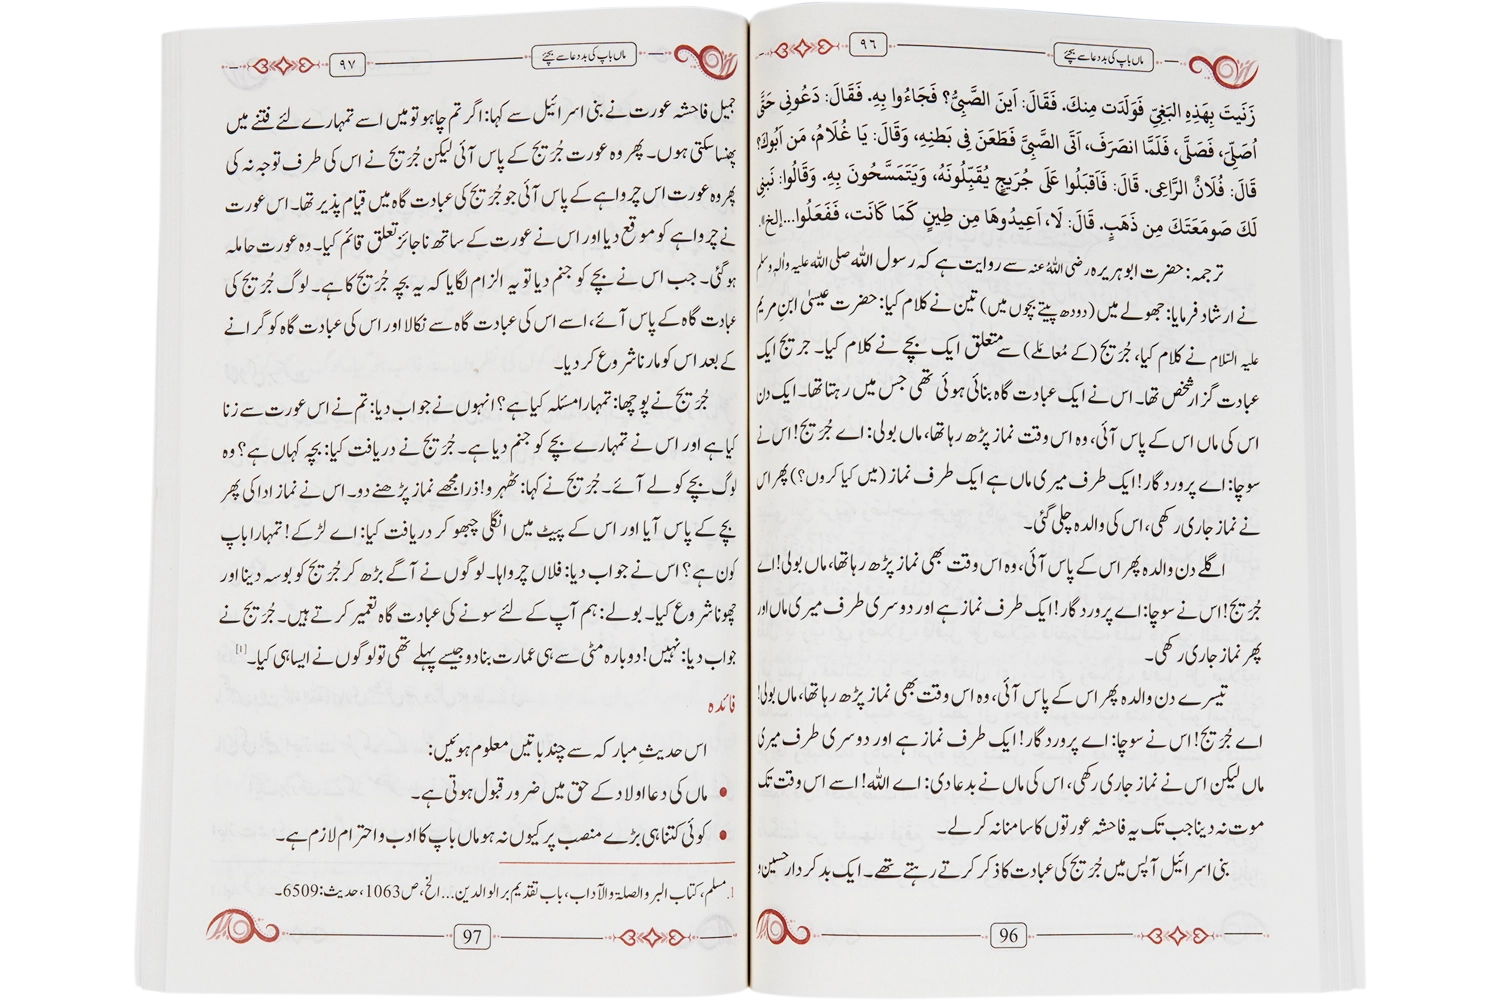 ۹۶
ماں باپ کی بددعا سے بچئے
زَنَيتَ بِهَذِهِ البَغِيِّ فَوَلَدَت مِنكَ. فَقَالَ: اَينَ الصَّبِيُّ؟ فَجَاءُوا بِهِ. فَقَالَ: دَعُونِي حَتَّى
اُصَلِّيَ، فَصَلَّى، فَلَمَّا انصَرَفَ، اَتَى الصَّبِيَّ فَطَعَنَ فِي بَطنِهِ، وَقَالَ: يَا غُلَامُ، مَن اَبُوكَ؟
قَالَ: فُلَانٌ الرَّاعِي. قَالَ: فَاَقبَلُوا عَلَى جُرَيجٍ يُقَبِّلُونَهُ، وَيَتَمَسَّحُونَ بِهِ. وَقَالُوا: نَبنِي
لَكَ صَومَعَتَكَ مِن ذَهَبٍ. قَالَ: لَا، اَعِيدُوهَا مِن طِينٍ كَمَا كَانَت، فَفَعَلُوا...إلخ».
ترجمہ: حضرت ابوہریرہ رضی اللہُ عنہ سے روایت ہے کہ رسول اللہ صلی اللہ علیہ واٰلہٖ وسلم
نے ارشاد فرمایا: جھولے میں (دودھ پیتے بچوں میں) تین نے کلام کیا: حضرت عیسیٰ ابنِ مریم
علیہ السّلام نے کلام کیا، جُرَیج (کے مُعاملے) سے متعلق ایک بچے نے کلام کیا۔ جریج ایک
عبادت گزار شخص تھا۔ اس نے ایک عبادت گاہ بنائی ہوئی تھی جس میں رہتا تھا۔ ایک دن
اس کی ماں اس کے پاس آئی، وہ اس وقت نماز پڑھ رہا تھا، ماں بولی: اے جُرَیج! اس نے
سوچا: اے پروردگار! ایک طرف میری ماں ہے ایک طرف نماز (میں کیا کروں؟) پھر اس
نے نماز جاری رکھی، اس کی والدہ چلی گئی۔
اگلے دن والدہ پھر اس کے پاس آئی، وہ اس وقت بھی نماز پڑھ رہا تھا، ماں بولی! اے
جُرَیج! اس نے سوچا: اے پروردگار! ایک طرف نماز ہے اور دوسری طرف میری ماں اور
پھر نماز جاری رکھی۔
تیسرے دن والدہ پھر اس کے پاس آئی، وہ اس وقت بھی نماز پڑھ رہا تھا، ماں بولی!
اے جُرَیج! اس نے سوچا: اے پروردگار! ایک طرف نماز ہے اور دوسری طرف میری
ماں لیکن اس نے نماز جاری رکھی، اس کی ماں نے بددعا دی: اے اللہ! اسے اس وقت تک
موت نہ دینا جب تک یہ فاحشہ عورتوں کا سامنا نہ کر لے۔
بنی اسرائیل آپس میں جُرَیج کی عبادت کا ذکر کرتے رہتے تھے۔ ایک بدکردار حسین و
96
۹۷
ماں باپ کی بددعا سے بچئے
جمیل فاحشہ عورت نے بنی اسرائیل سے کہا: اگر تم چاہو تو میں اسے تمہارے لئے فتنے میں
پھنسا سکتی ہوں۔ پھر وہ عورت جُرَیج کے پاس آئی لیکن جُرَیج نے اس کی طرف توجہ نہ کی
پھر وہ عورت اس چرواہے کے پاس آئی جو جُرَیج کی عبادت گاہ میں قیام پذیر تھا۔ اس عورت
نے چرواہے کو موقع دیا اور اس نے عورت کے ساتھ ناجائز تعلق قائم کیا۔ وہ عورت حاملہ
ہو گئی۔ جب اس نے بچے کو جنم دیا تو یہ الزام لگایا کہ یہ بچہ جُرَیج کا ہے۔ لوگ جُرَیج کی
عبادت گاہ کے پاس آئے، اسے اس کی عبادت گاہ سے نکالا اور اس کی عبادت گاہ کو گرانے
کے بعد اس کو مارنا شروع کر دیا۔
جُرَیج نے پوچھا: تمہارا مسئلہ کیا ہے؟ انہوں نے جواب دیا: تم نے اس عورت سے زنا
کیا ہے اور اس نے تمہارے بچے کو جنم دیا ہے۔ جُرَیج نے دریافت کیا: بچہ کہاں ہے؟ وہ
لوگ بچے کو لے آئے۔ جُرَیج نے کہا: ٹھہرو! ذرا مجھے نماز پڑھنے دو۔ اس نے نماز ادا کی پھر
بچے کے پاس آیا اور اس کے پیٹ میں انگلی چبھو کر دریافت کیا: اے لڑکے! تمہارا باپ
کون ہے؟ اس نے جواب دیا: فلاں چرواہا۔ لوگوں نے آگے بڑھ کر جُرَیج کو بوسہ دینا اور
چھونا شروع کیا۔ بولے: ہم آپ کے لئے سونے کی عبادت گاہ تعمیر کرتے ہیں۔ جُرَیج نے
جواب دیا: نہیں! دوبارہ مٹی سے ہی عمارت بنا دو جیسے پہلے تھی تو لوگوں نے ایسا ہی کیا۔ [1]
فائدہ
اس حدیثِ مبارکہ سے چند باتیں معلوم ہوئیں:
• ماں کی دعا اولاد کے حق میں ضرور قبول ہوتی ہے۔
• کوئی کتنا ہی بڑے منصب پر کیوں نہ ہو ماں باپ کا ادب و احترام لازم ہے۔
1. مسلم، کتاب البر والصلۃ والآداب، باب تقدیم بر الوالدین... الخ، ص 1063، حدیث: 6509۔
97